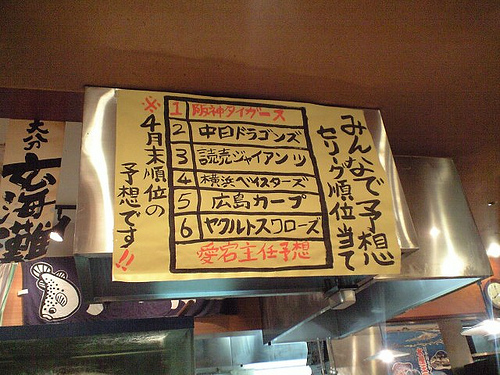 みんなで予想
セリーグ順位当て
1 阪神タイガース
2 中日ドラゴンズ
3 読売ジャイアンツ
4 横浜ベイスターズ
5 広島カープ
6 ヤクルトスワローズ
愛宕主任予想
※4月末順位の
予想です!!
大分
玄海灘